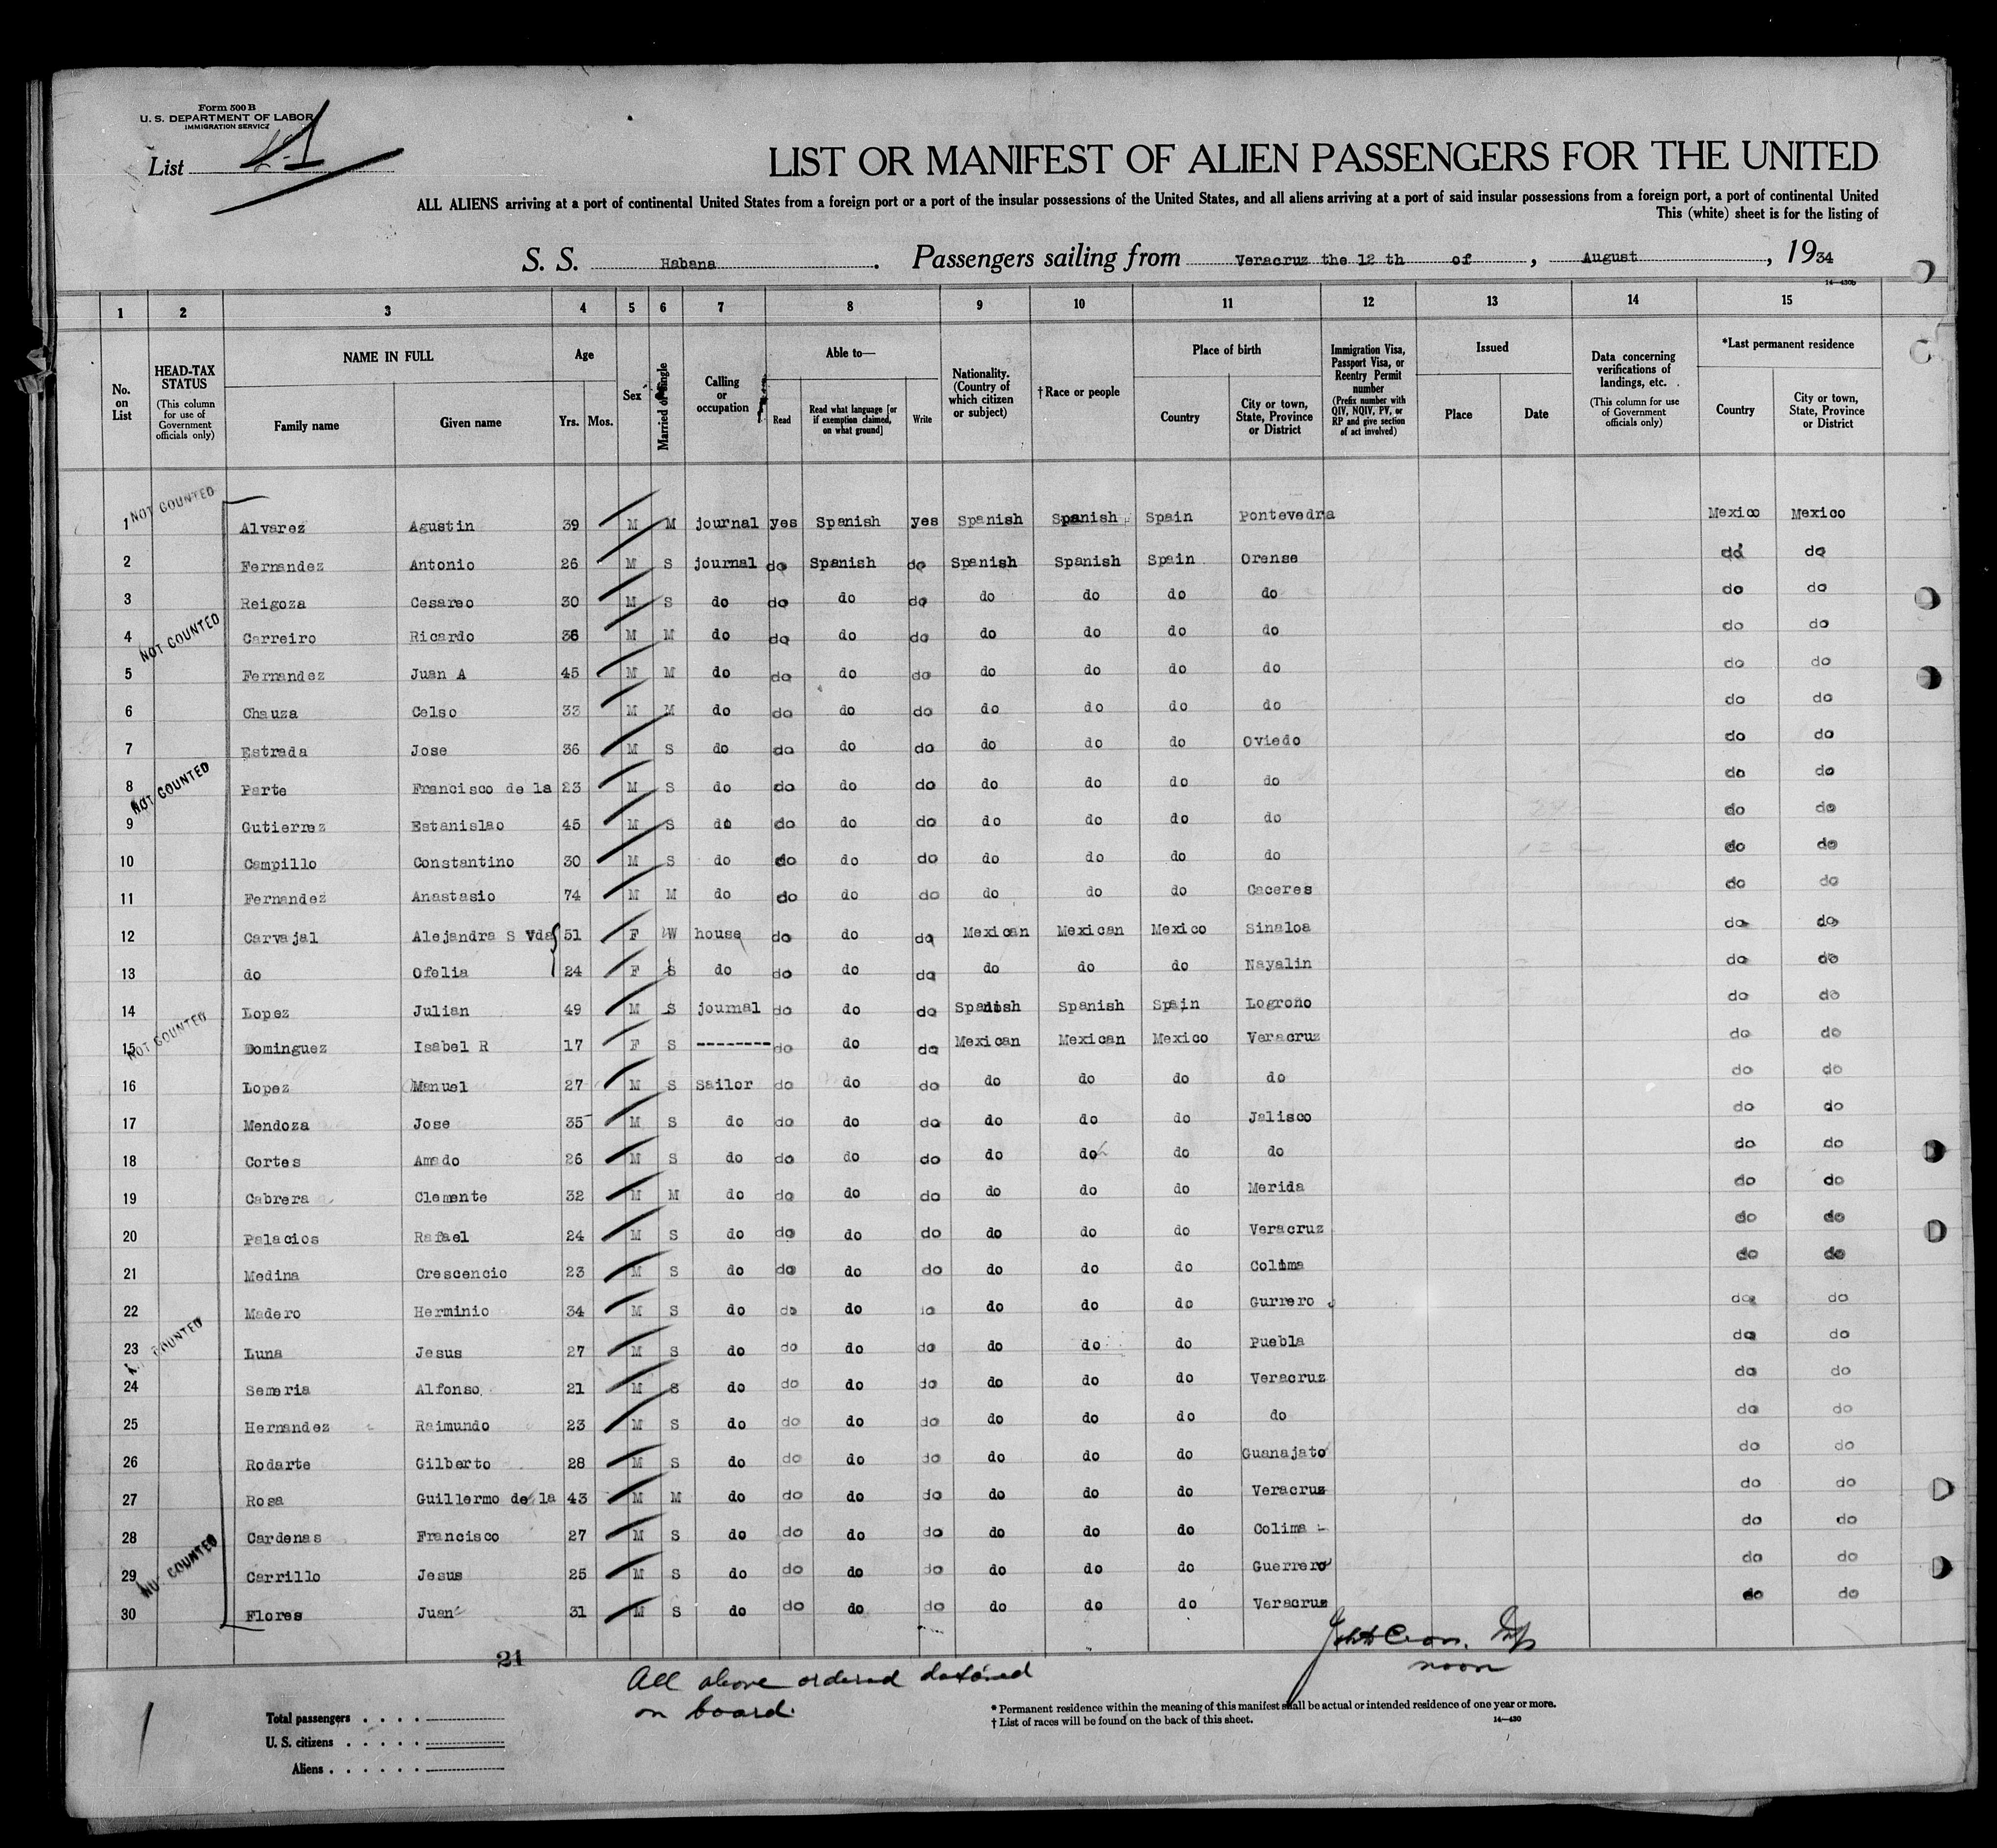 Form 500 B
U. S. DEPARTMENT OF LABOR
IMMIGRATION SERVICE
List
LIST OR MANIFEST OF ALIEN PASSENGERS FOR THE UNITED
ALL ALIENS arriving at a port of continental United States from a foreign port or a port of the insular possessions of the United States, and all aliens arriving at a port of said insular possessions from a foreign port, a port of continental United
This (white) sheet is for the listing of
S. S. Habana. Passengers sailing from Veracruz the 12 th of, August, 1934
14—430b
1 2 3 4 5 6 7 8 9 10 11 12 13 14 15
No. on List
HEAD-TAX STATUS (This column for use of Government officials only)
NAME IN FULL
Family name Given name
Age
Yrs. Mos.
Sex
Married or single
Calling or occupation
Able to—
Read Read what language [or if exemption claimed, on what ground] Write
Nationality. (Country of which citizen or subject)
† Race or people
Place of birth
Country City or town, State, Province or District
Immigration Visa, Passport Visa, or Reentry Permit number (Prefix number with QIV, NQIV, PV, or RP and give section of act involved)
Issued
Place Date
Data concerning verifications of landings, etc. (This column for use of Government officials only)
*Last permanent residence
Country City or town, State, Province or District
NOT COUNTED
1 Alvarez Agustin 39 M M journal yes Spanish yes Spanish Spanish Spain Pontevedra Mexico Mexico
2 Fernandez Antonio 26 M S journal do Spanish do Spanish Spanish Spain Orense do do
3 Reigoza Cesareo 30 M S do do do do do do do do do do
NOT COUNTED
4 Carreiro Ricardo 36 M M do do do do do do do do do do
5 Fernandez Juan A 45 M M do do do do do do do do do do
6 Chauza Celso 33 M M do do do do do do do do do do
7 Estrada Jose 36 M S do do do do do do do Oviedo do do
NOT COUNTED
8 Parte Francisco de la 23 M S do do do do do do do do do do
9 Gutierrez Estanislao 45 M S do do do do do do do do do do
10 Campillo Constantino 30 M S do do do do do do do do do do
11 Fernandez Anastasio 74 M M do do do do do do do Caceres do do
12 Carvajal Alejandra S Vda 51 F W house do do do Mexican Mexican Mexico Sinaloa do do
13 do Ofelia 24 F S do do do do do do do Nayalin do do
14 Lopez Julian 49 M S journal do do do Spanish Spanish Spain Logroño do do
NOT COUNTED
15 Dominguez Isabel R 17 F S -------- do do do Mexican Mexican Mexico Veracruz do do
16 Lopez Manuel 27 M S Sailor do do do do do do do do do
17 Mendoza Jose 35 M S do do do do do do do Jalisco do do
18 Cortes Amado 26 M S do do do do do do do do do do
19 Cabrera Clemente 32 M M do do do do do do do Merida do do
20 Palacios Rafael 24 M S do do do do do do do Veracruz do do
21 Medina Crescencio 23 M S do do do do do do do Colima do do
22 Madero Herminio 34 M S do do do do do do do Gurrero do do
COUNTED
23 Luna Jesus 27 M S do do do do do do do Puebla do do
24 Semeria Alfonso 21 M S do do do do do do do Veracruz do do
25 Hernandez Raimundo 23 M S do do do do do do do do do do
26 Rodarte Gilberto 28 M S do do do do do do do Guanajato do do
27 Rosa Guillermo de la 43 M M do do do do do do do Veracruz do do
28 Cardenas Francisco 27 M S do do do do do do do Colima do do
NOT COUNTED
29 Carrillo Jesus 25 M S do do do do do do do Guerrero do do
30 Flores Juan 31 M S do do do do do do do Veracruz do do
21
noon
All above ordered detained
on board.
* Permanent residence within the meaning of this manifest shall be actual or intended residence of one year or more.
† List of races will be found on the back of this sheet.
14—430
Total passengers . . . .
U. S. citizens . . . . .
Aliens . . . . . .